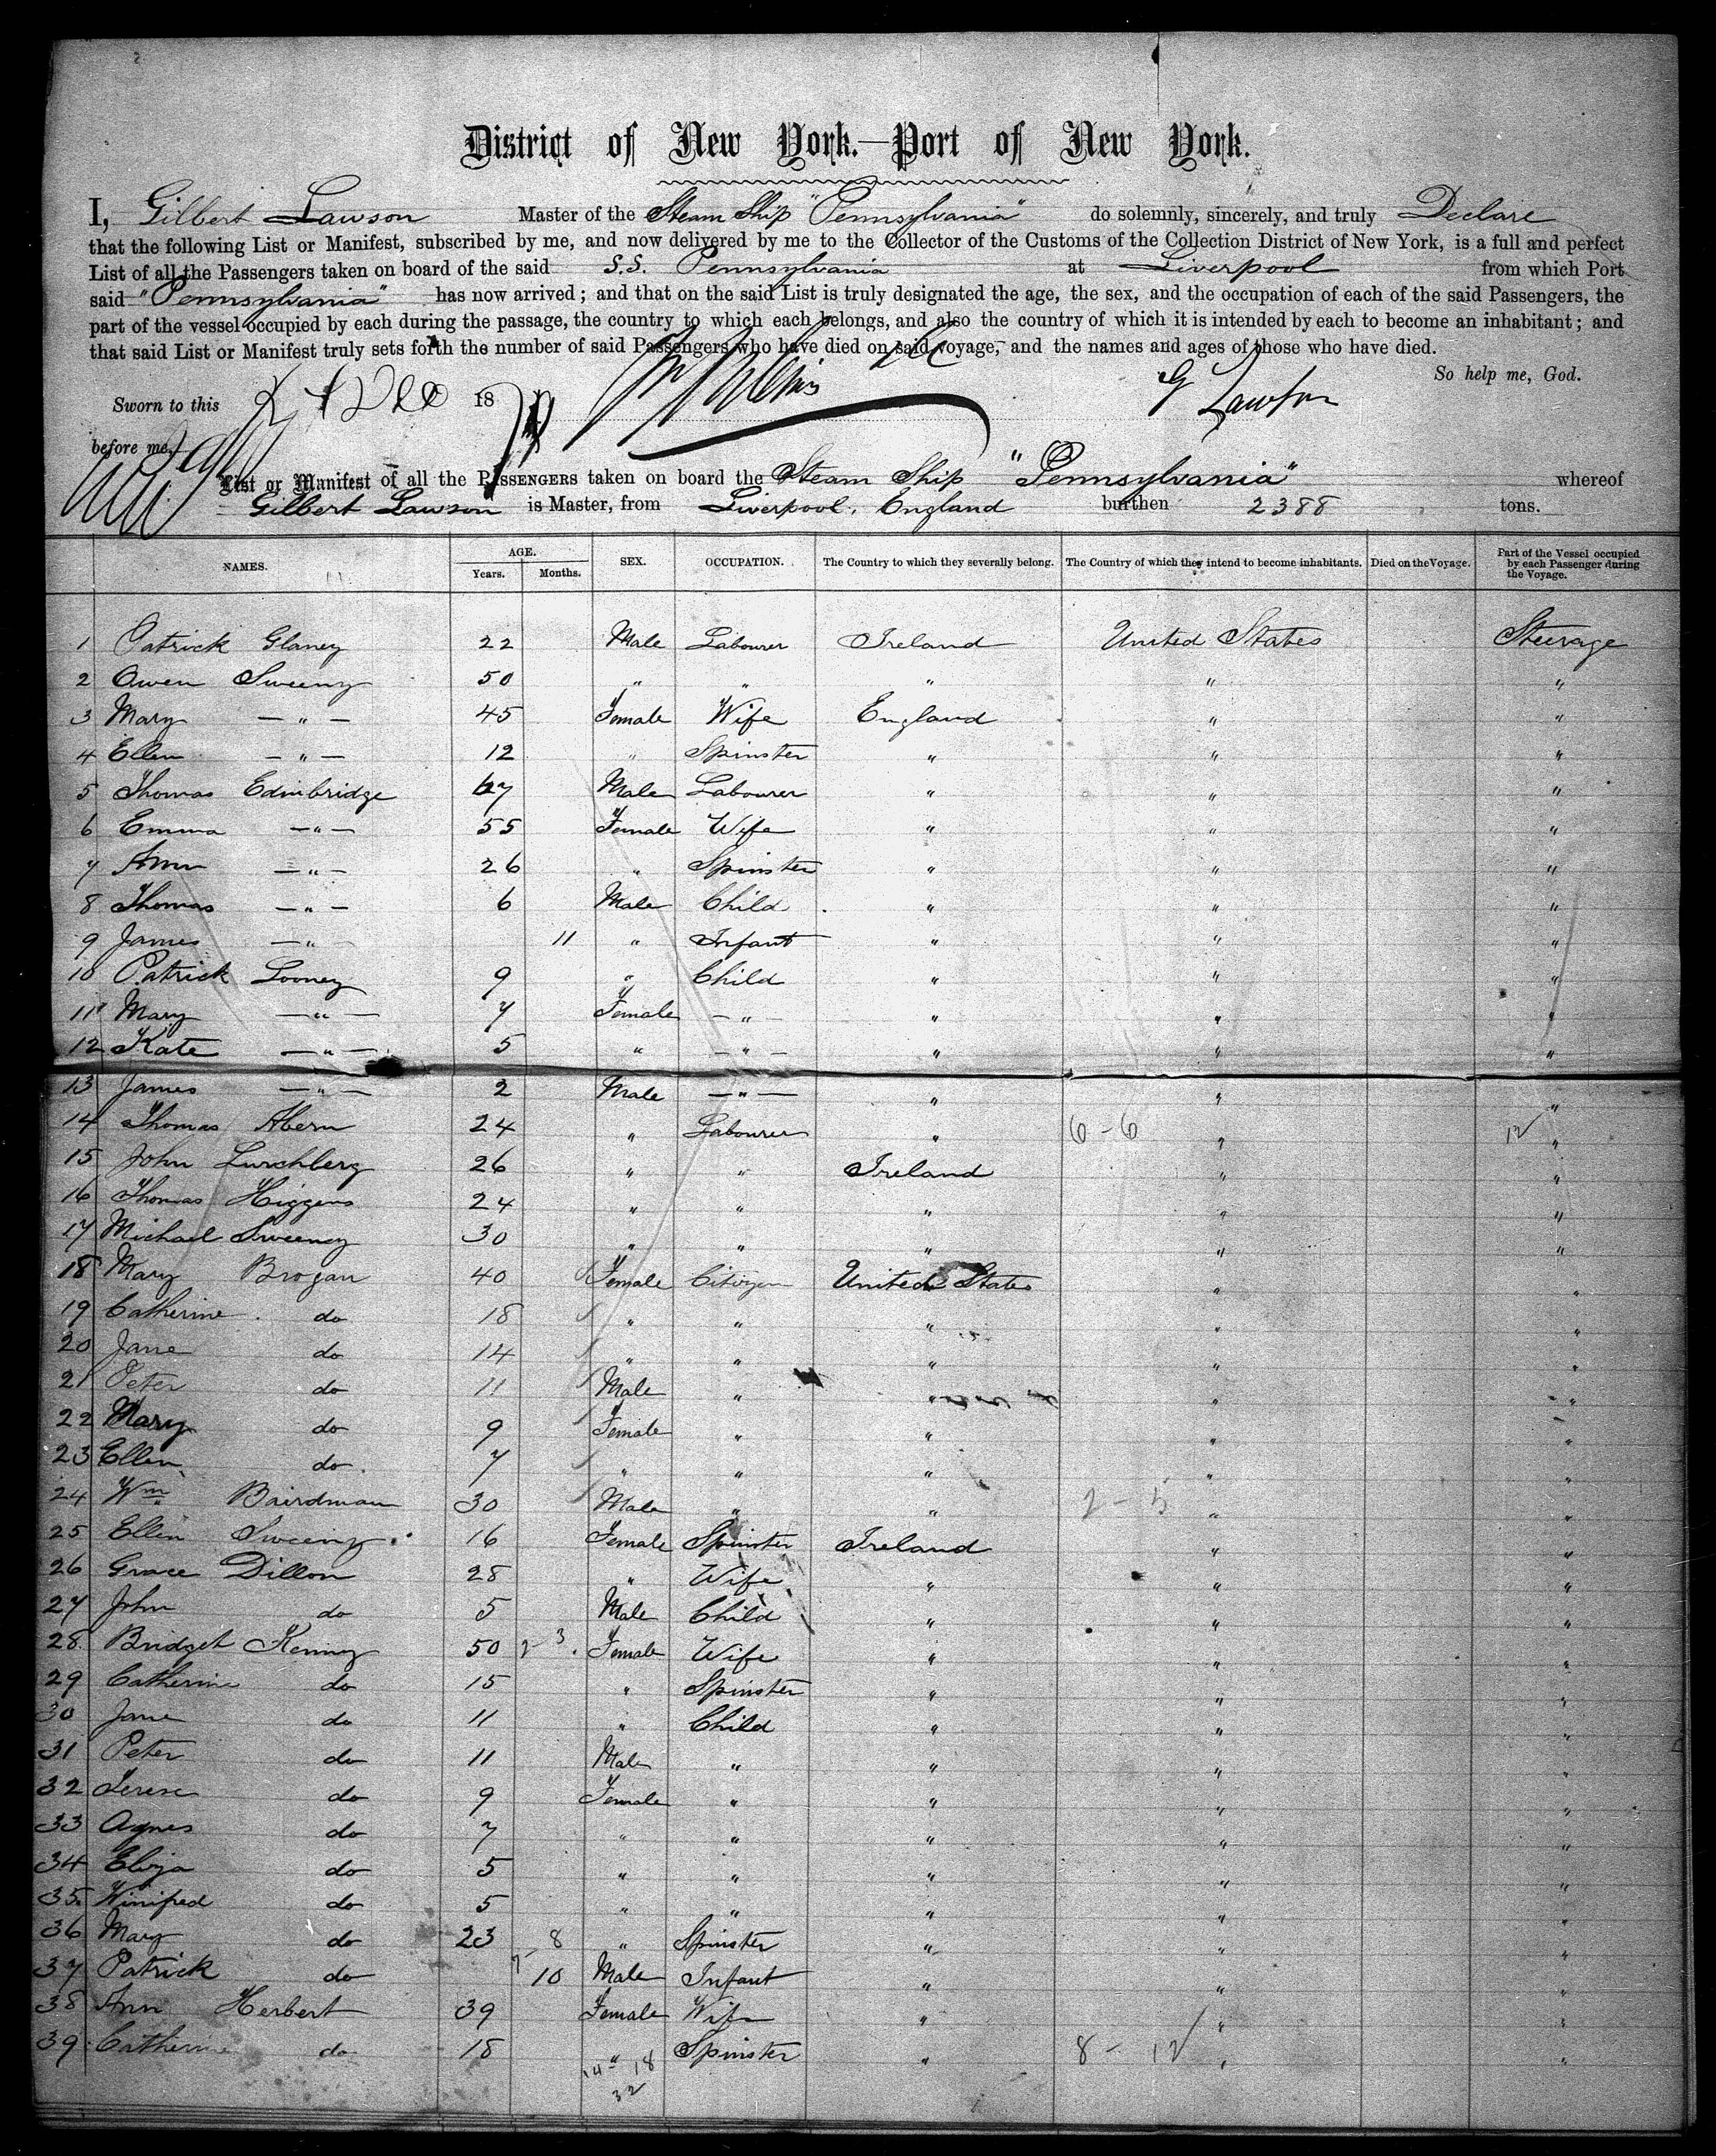 District of New York.—Port of New York.
I, Gilbert Lawson Master of the Steam Ship "Pennsylvania" do solemnly, sincerely, and truly Declare
that the following List or Manifest, subscribed by me, and now delivered by me to the Collector of the Customs of the Collection District of New York, is a full and perfect
List of all the Passengers taken on board of the said S.S. Pennsylvania at Liverpool from which Port
said "Pennsylvania" has now arrived; and that on the said List is truly designated the age, the sex, and the occupation of each of the said Passengers, the
part of the vessel occupied by each during the passage, the country to which each belongs, and also the country of which it is intended by each to become an inhabitant; and
that said List or Manifest truly sets forth the number of said Passengers who have died on said voyage, and the names and ages of those who have died.
So help me, God.
Sworn to this Dec 18 G Lawson
before me,
List or Manifest of all the PASSENGERS taken on board the Steam Ship "Pennsylvania" whereof
Gilbert Lawson is Master, from Liverpool, England burthen 2388 tons.
NAMES. AGE. Years. Months. SEX. OCCUPATION. The Country to which they severally belong. The Country of which they intend to become inhabitants. Died on the Voyage. Part of the Vessel occupied by each Passenger during the Voyage.
1 Patrick Glaney 22 Male Labourer Ireland United States Steerage
2 Owen Sweeny 50 " " " " "
3 Mary — " — 45 Female Wife England " "
4 Ellen — " — 12 " Spinster " " "
5 Thomas Edinbridge 67 Male Labourer " " "
6 Emma — " — 55 Female Wife " " "
7 Ann — " — 26 " Spinster " " "
8 Thomas — " — 6 Male Child " " "
9 James — " — 11 " Infant " " "
10 Patrick Looney 9 " Child " " "
11 Mary — " — 7 Female — " — " " "
12 Kate — " — 5 " — " — " " "
13 James — " — 2 Male — " — " " "
14 Thomas Ahern 24 " Labourer " 6 - 6 " 12 "
15 John Lurchberg 26 " " Ireland " "
16 Thomas Higgens 24 " " " " "
17 Michael Sweeney 30 " " " " "
18 Mary Brogan 40 Female Citizen United States " "
19 Catherine do 18 " " " " "
20 Jane do 14 " " " " "
21 Peter do 11 Male " " " "
22 Mary do 9 Female " " " "
23 Ellen do 7 " " " " "
24 Wm Bairdman 30 Male " " 2 - 5 " "
25 Ellen Sweeny 16 Female Spinster Ireland " "
26 Grace Dillon 28 " Wife " " "
27 John do 5 Male Child " " "
28 Bridget Kenny 50 2 - 3 Female Wife " " "
29 Catherine do 15 " Spinster " " "
30 Jane do 11 " Child " " "
31 Peter do 11 Male " " " "
32 Terese do 9 Female " " " "
33 Agnes do 7 " " " " "
34 Eliza do 5 " " " " "
35 Winifred do 5 " " " " "
36 Mary do 23 8 " Spinster " " "
37 Patrick do 10 Male Infant " " "
38 Ann Herbert 39 Female Wife " " "
39 Catherine do 18 " Spinster " 8 - 12 " "
14 - 18
32